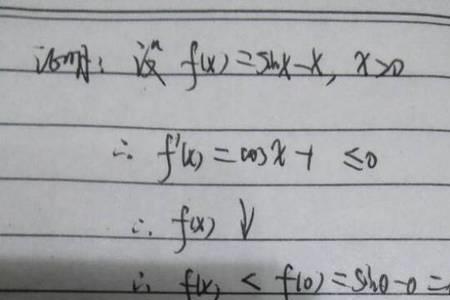 证明: 设 f(x)=sinx-x, x>0
∴ f'(x)=cosx-1 ≤0
∴ f(x) ↓
∴ f(x) < f(0)=sin0-0=